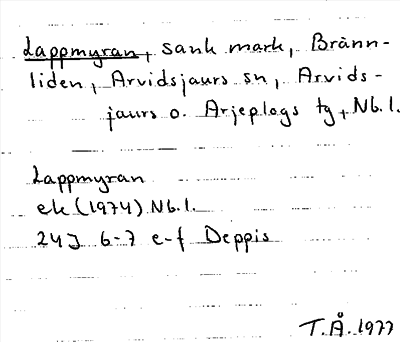 Lappmyran, sank mark, Bränn-
liden, Arvidsjaurs sn, Arvids-
jaurs o. Arjeplogs tg, Nb.l.
Lappmyran
ek (1974) Nb.l.
24J 6-7 e-f Deppis
T.Å. 1977